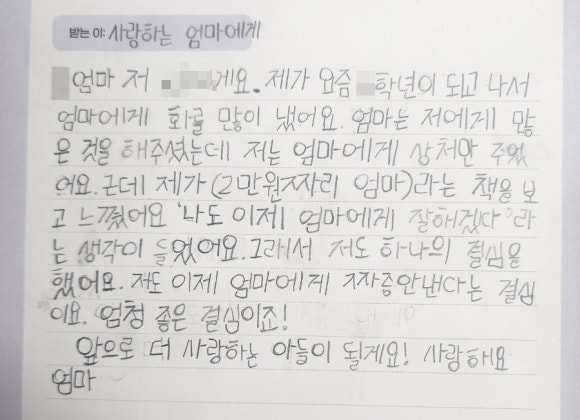 받는 이: 사랑하는 엄마에게
엄마 저 게요. 제가 요즘 학년이 되고 나서
엄마에게 화를 많이 냈어요. 엄마는 저에게 많
은 것을 해주셨는데 저는 엄마에게 상처만 주었
어요. 근데 제가 (2만원짜리 엄마)라는 책을 보
고 느꼈어요 '나도 이제 엄마에게 잘해겠다'라
는 생각이 들었어요. 그래서 저도 하나의 결심을
했어요. 저도 이제 엄마에게 짜증안낸다는 결심
이요. 엄청 좋은 결심이죠!
앞으로 더 사랑하는 아들이 될게요! 사랑해요
엄마